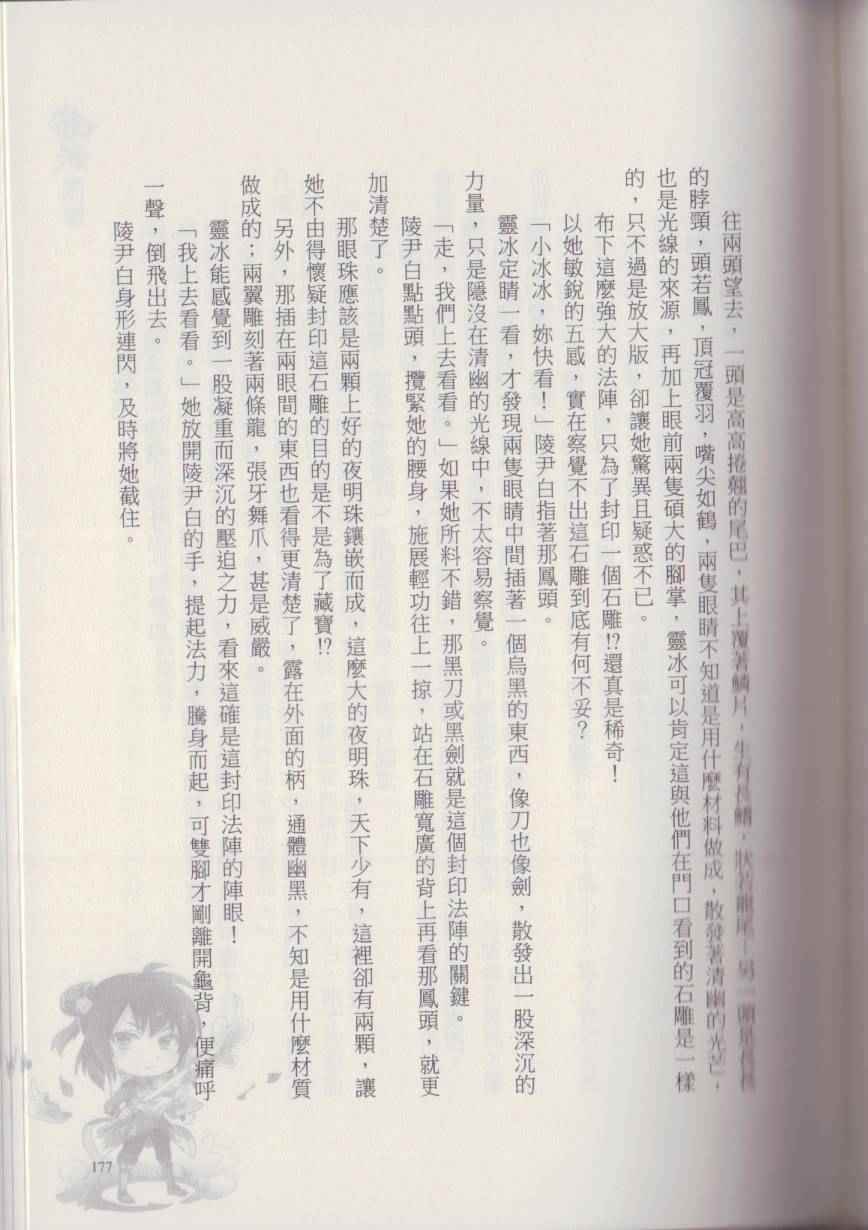 往兩頭望去，一頭是高高捲翹的尾巴，其上覆著鱗片，生有長鰭，狀若龍尾；另一頭是
的脖頸，頭若鳳，頂冠覆羽，嘴尖如鶴，兩隻眼睛不知道是用什麼材料做成，散發著清幽的光芒，
也是光線的來源，再加上眼前兩隻碩大的腳掌，靈冰可以肯定這與他們在門口看到的石雕是一樣
的，只不過是放大版，卻讓她驚異且疑惑不已。
布下這麼強大的法陣，只為了封印一個石雕!?還真是稀奇！
以她敏銳的五感，實在察覺不出這石雕到底有何不妥？
「小冰冰，妳快看！」陵尹白指著那鳳頭。
靈冰定睛一看，才發現兩隻眼睛中間插著一個烏黑的東西，像刀也像劍，散發出一股深沉的
力量，只是隱沒在清幽的光線中，不太容易察覺。
「走，我們上去看看。」如果她所料不錯，那黑刀或黑劍就是這個封印法陣的關鍵。
陵尹白點點頭，攬緊她的腰身，施展輕功往上一掠，站在石雕寬廣的背上再看那鳳頭，就更
加清楚了。
那眼珠應該是兩顆上好的夜明珠鑲嵌而成，這麼大的夜明珠，天下少有，這裡卻有兩顆，讓
她不由得懷疑封印這石雕的目的是不是為了藏寶!?
另外，那插在兩眼間的東西也看得更清楚了，露在外面的柄，通體幽黑，不知是用什麼材質
做成的；兩翼雕刻著兩條龍，張牙舞爪，甚是威嚴。
靈冰能感覺到一股凝重而深沉的壓迫之力，看來這確是這封印法陣的陣眼！
「我上去看看。」她放開陵尹白的手，提起法力，騰身而起，可雙腳才剛離開龜背，便痛呼
一聲，倒飛出去。
陵尹白身形連閃，及時將她截住。
177